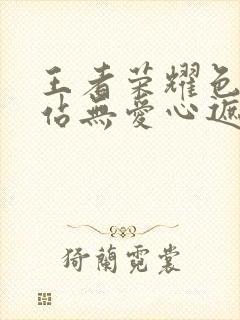 王者荣耀色
佔無愛心遮
猗蘭霓裳